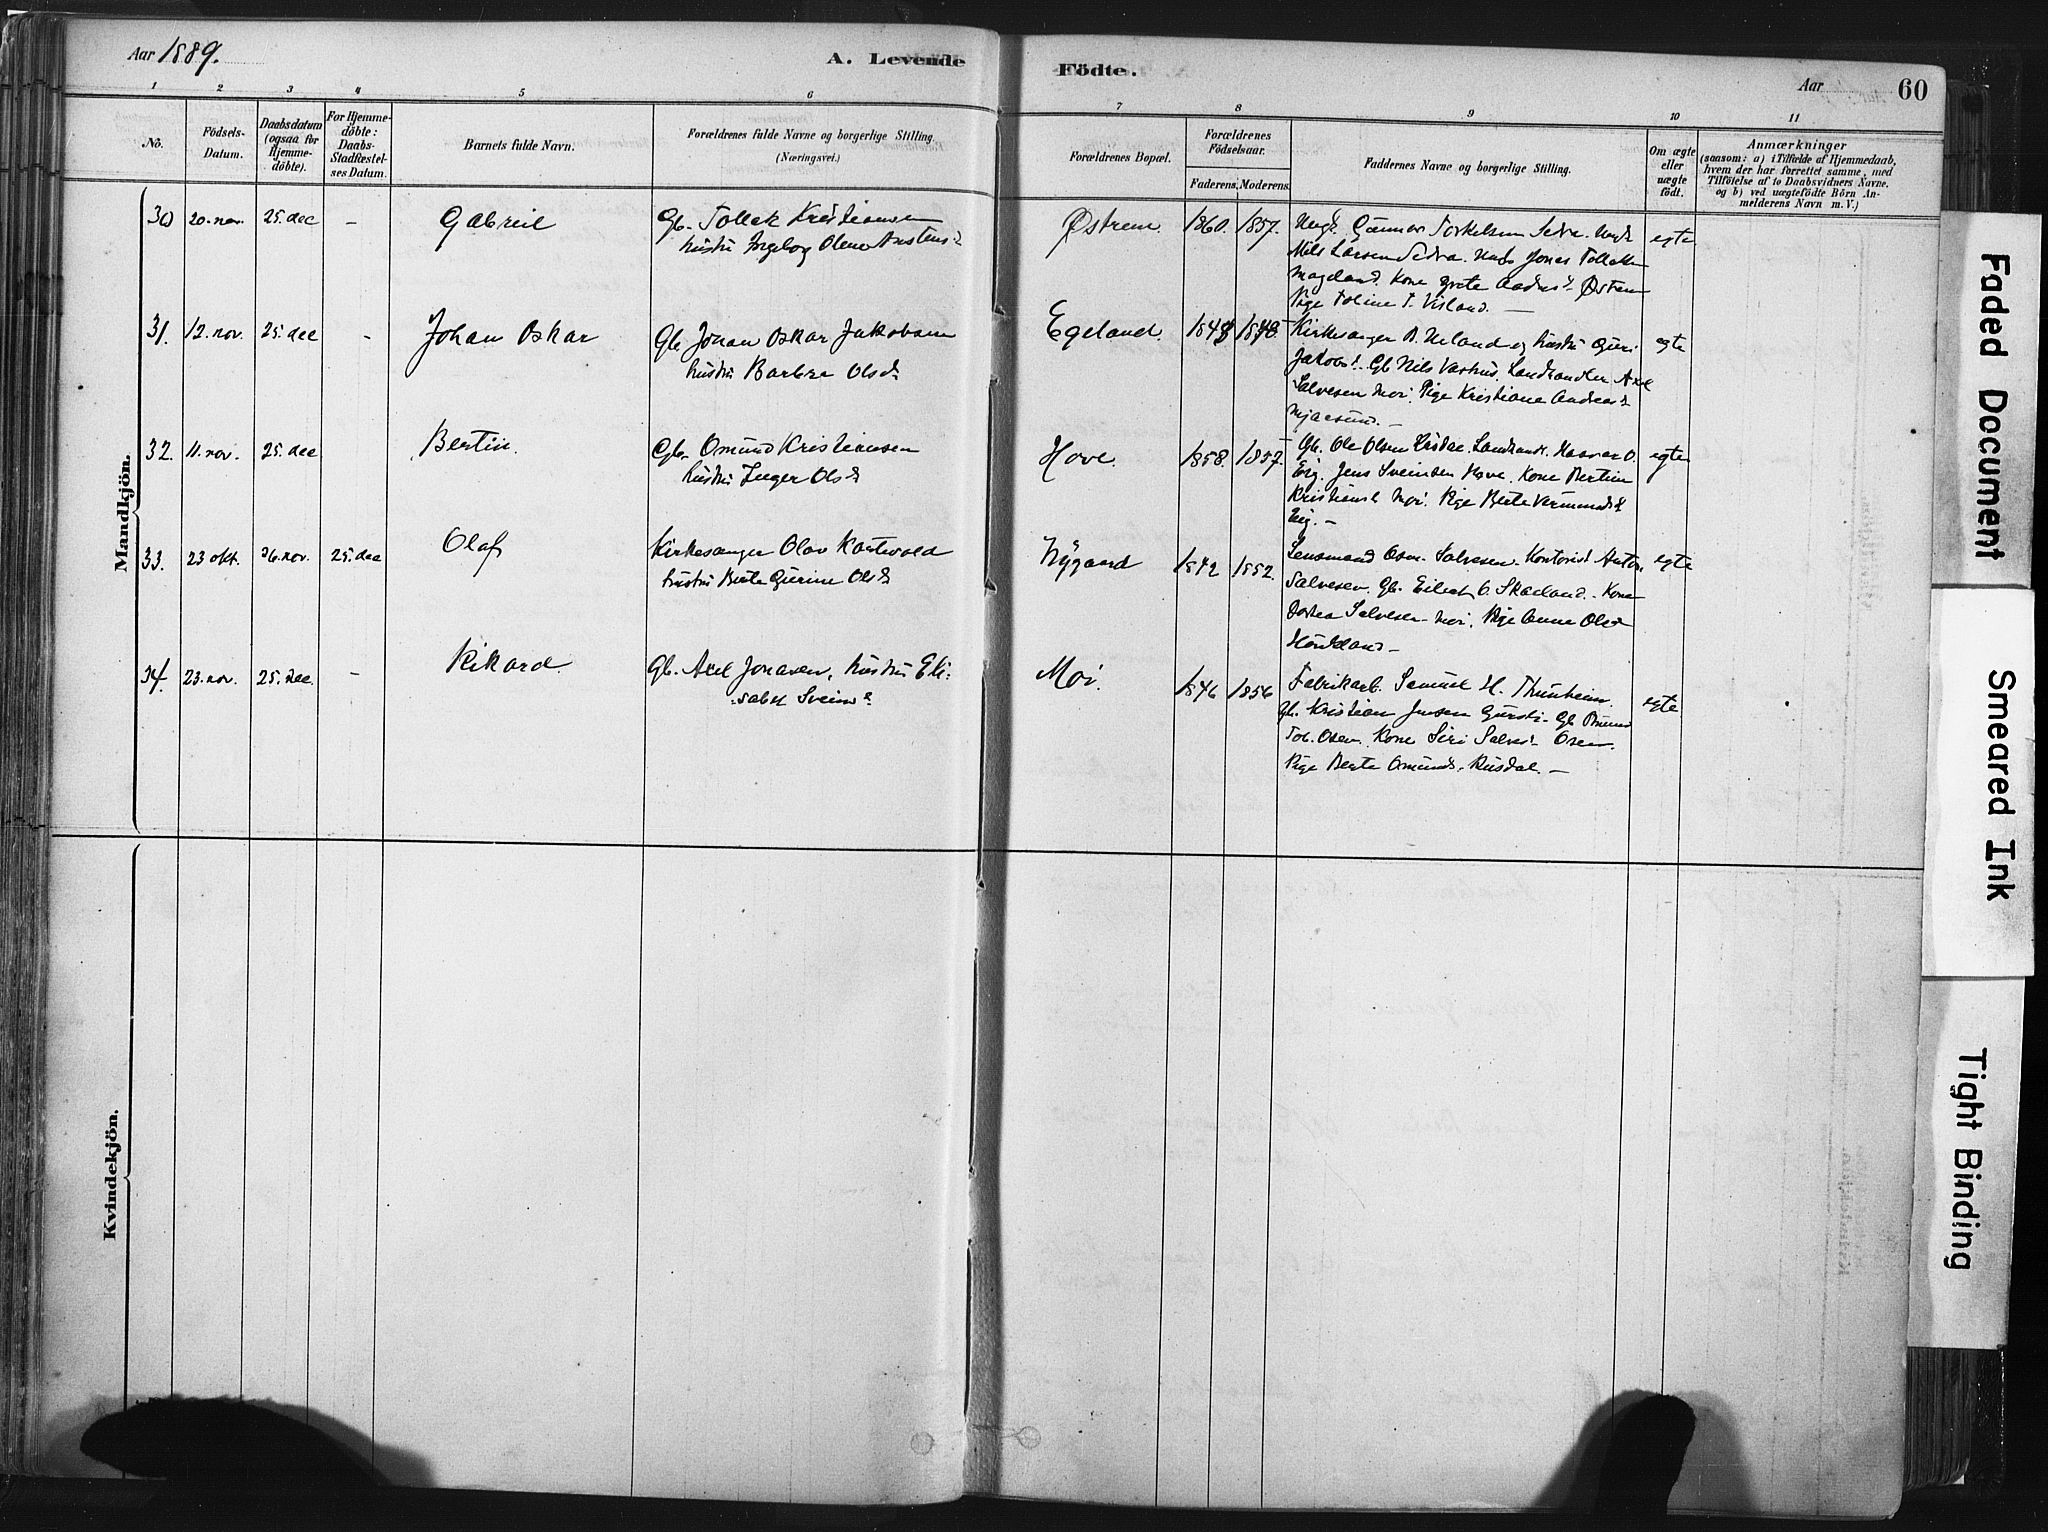 Aar 1889.
A. Levende
Födte.
Aar
60
1 2 3 4 5 6 7 8 9 10 11
No.
Födsels-
Datum.
Daabsdatum
(ogsaa for
Hjemme-
döbte).
For Hjemme-
döbte:
Daabs-
Stadfæstel-
ses Datum.
Barnets fulde Navn.
Forældrenes fulde Navne og borgerlige Stilling.
(Næringsvei.)
Forældrenes Bopæl.
Forældrenes
Födselsaar.
Faderens. Moderens.
Faddernes Navne og borgerlige Stilling.
Om ægte
eller
uægte
födt.
Anmærkninger
(saasom: a) i Tilfælde af Hjemmedaab,
hvem der har forrettet samme, med
Tilföielse af to Daabsvidners Navne,
og b) ved uægtefödte Börn An-
melderens Navn m. V.)
Mandkjön.
30 20. nov. 25. dec - Gabriel
Gb. Tollak Kristiansen
hustru Ingebog Olene
Østrem 1860. 1857.
Ungk. Gunnar Torkelsen Sedva. Ungk
Nils Larsen Sedva. Jonas
Mageland. Kone Grete Østrem
Pige Toline T. Visland. -
egte
31. 12. nov. 25. dec - Johan Oskar
Gb. Johan Oskar Jakobsen
hustru Barbro Olsd.
Egeland. 1848
Kirkesanger O. Ueland og hustru Guri
Gb Nils Landhandler Axel
Salvesen Moi. Pige Kristiane Andreasd.
egte
32. 11. nov. 25. dec Bertin
Gb. Omund Kristiansen
hustru Inger Olsd.
Hove. 1858. 1857.
Gb. Ole Olsen Landhandl. Haavar O.
Eig. Jens Sveinsen Hove. Kone Bertine
Moi. Pige Berte
Eig. -
egte
33. 23 okt. 26. nov. 25. dec Olaf
Kirkesanger Olav
hustru Berte Gurine Olsd.
Nygaard 1842 1852.
Lensmand Osm. Salvesen. Kontorist Anton
Salvesen. Gb. Eilert O. Skaeland. Kone
Dortea Salvesen Moi. Pige Anne Olsd
egte
34. 23. nov. 25. dec. - Rikard
Gb. Axel Jonasen, hustru Eli-
sabet Sveinsd.
Moi. 1846 1856
Fabrikarb. Samuel H. Thunheim.
Gb. Kristian Jensen Gb
Tob. Osen. Kone Siri Salvesd. Osen.
Pige Berte Omunds. Rusdal. -
egte
Kvindekjön.
Faded Document
Smeared Ink
Tight Binding